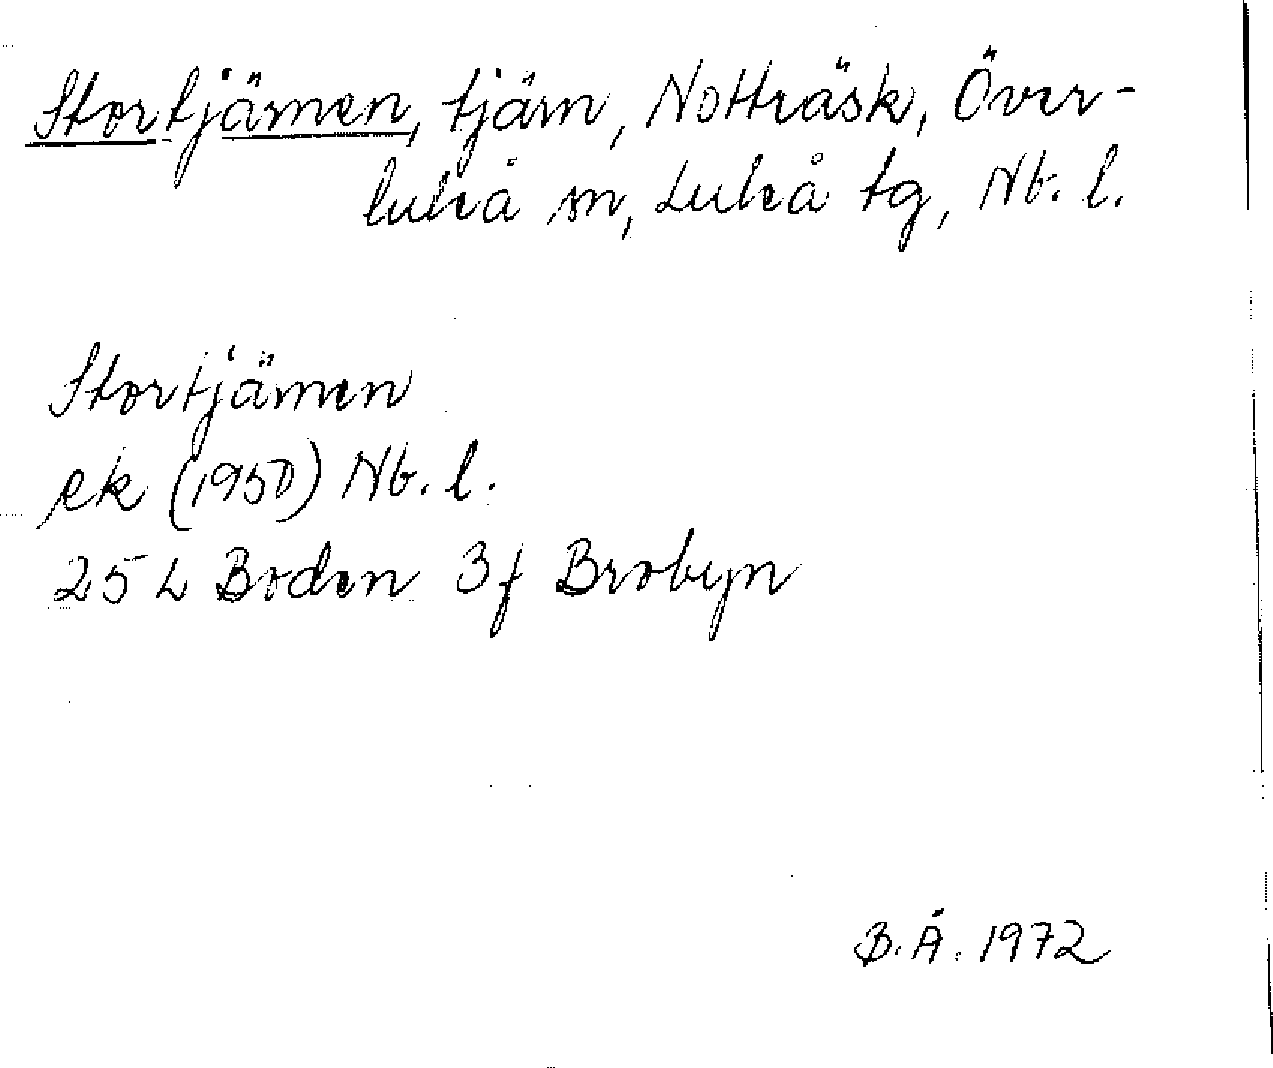 Stortjärnen, tjärn, Notträsk, Över-
luleå sn, Luleå tg, Nb. l.
Stortjärnen
ek (1950) Nb. l.
25 L Boden 3f Brobyn
B.Å. 1972